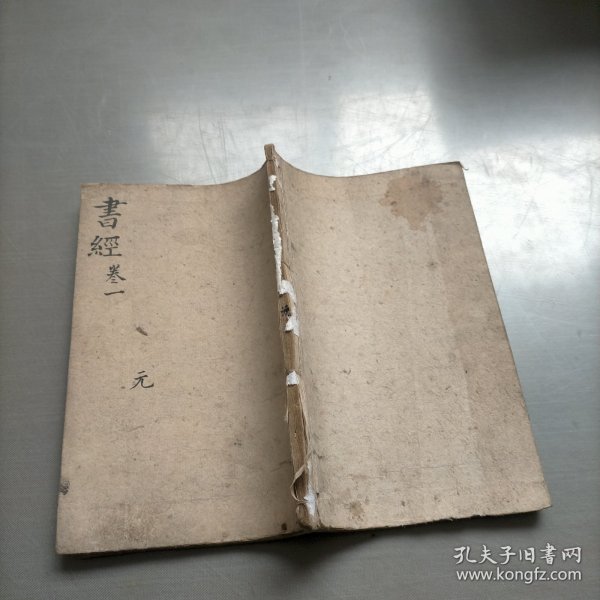 書經卷一
元
孔夫子旧書网
www.kongfz.com